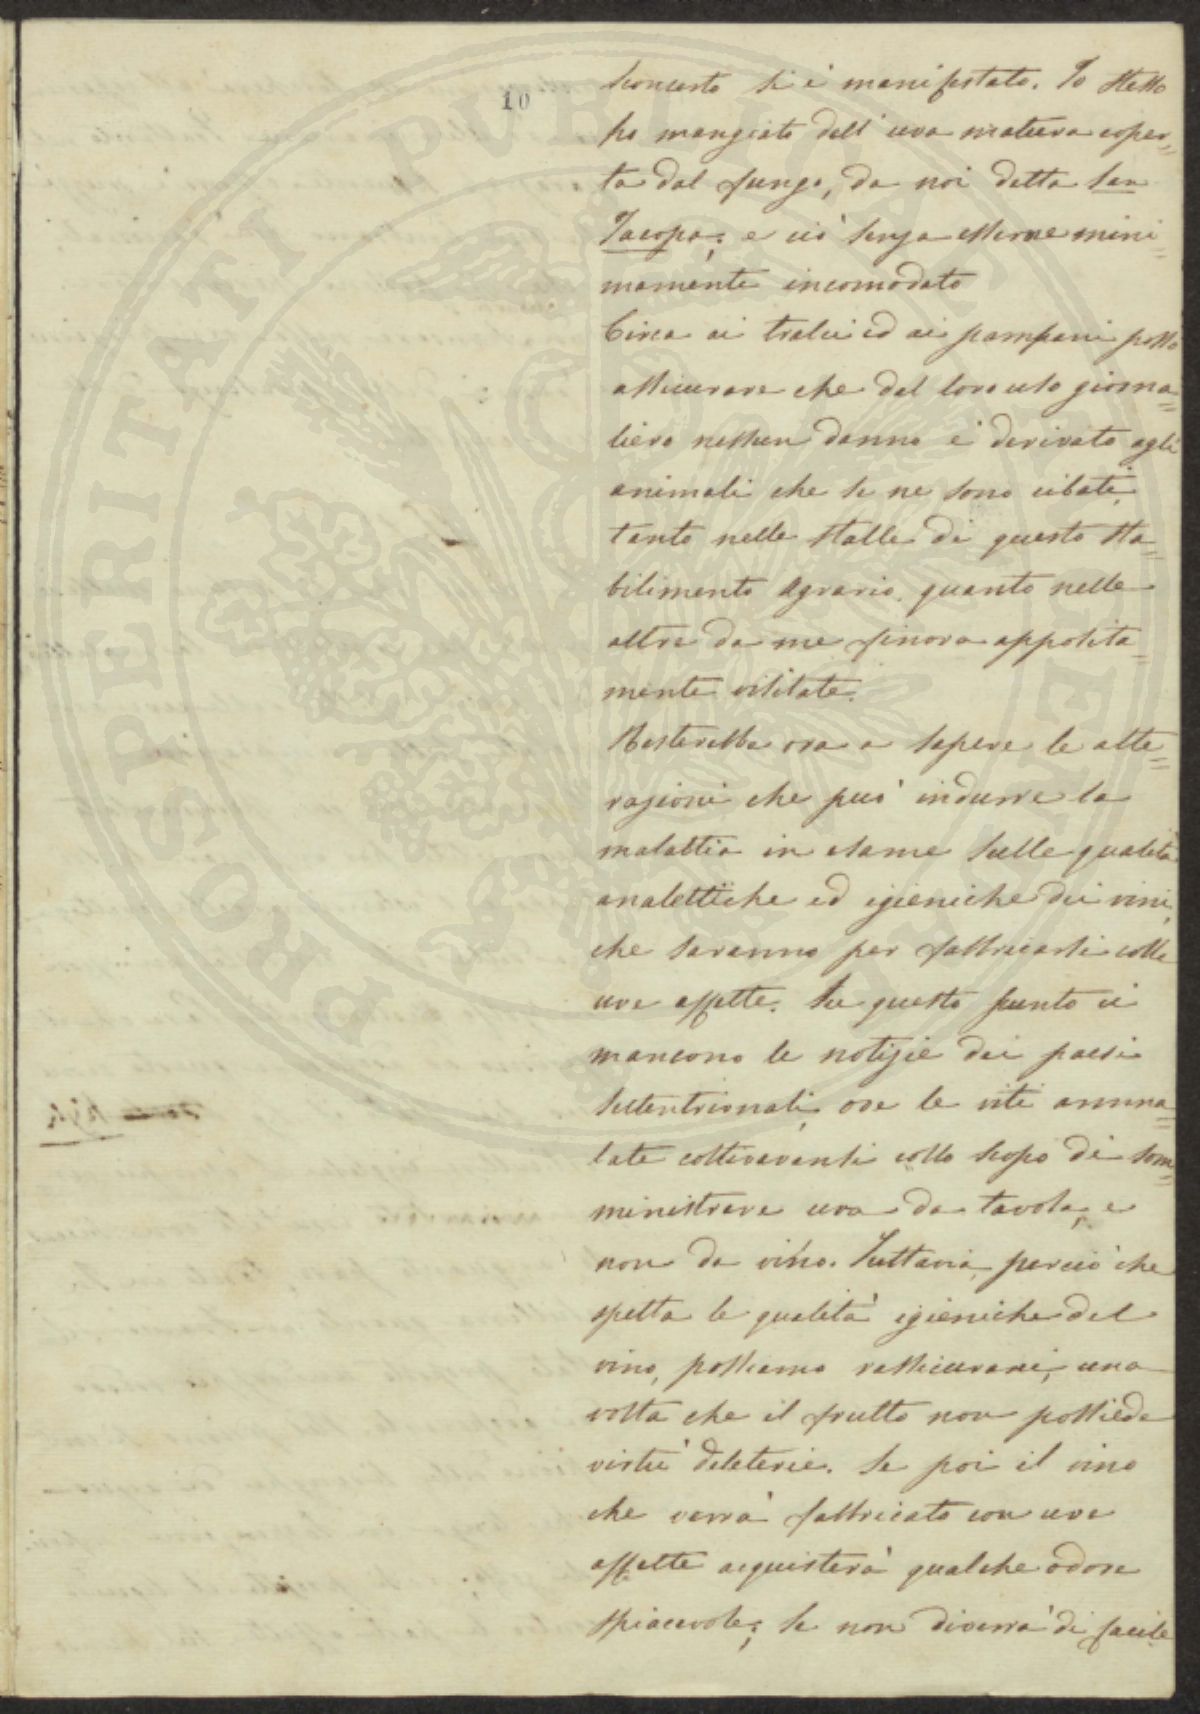 10
sconcerto si è manifestato. Io stesso
ho mangiato dell'uva matura coper=
ta dal fungo, da noi detta San
Jacopa; e ciò senza esserne mini=
mamente incomodato
Circa ai tralci ed ai pampani posso
assicurare che dal loro uso giorna=
liero nessun danno è derivato agli
animali che se ne sono cibati,
tanto nelle stalle di questo sta=
bilimento Agrario, quanto nelle
altre da me finora apposita=
mente visitate.
Resterebbe ora a sapere le alte=
razioni che può indurre la
malattia in esame sulle qualità
analettiche ed igieniche dei vini,
che saranno per fabbricarsi colle
uve affette. Su questo punto ci
mancono le notizie dei paesi
settentrionali, ove le viti amma=
late coltivavansi collo scopo di som=
ministrare uva da tavola, e
non da vino. Tuttavia, perciò che
spetta le qualità igieniche del
vino, possiamo rassicurarci, una
volta che il frutto non possiede
virtù deleterie. Se poi il vino
che verrà fabbricato con uve
affette acquisterà qualche odore
spiacevole; se non diverrà di facile
PROSPERITATI PUBLICAE AUGENDAE